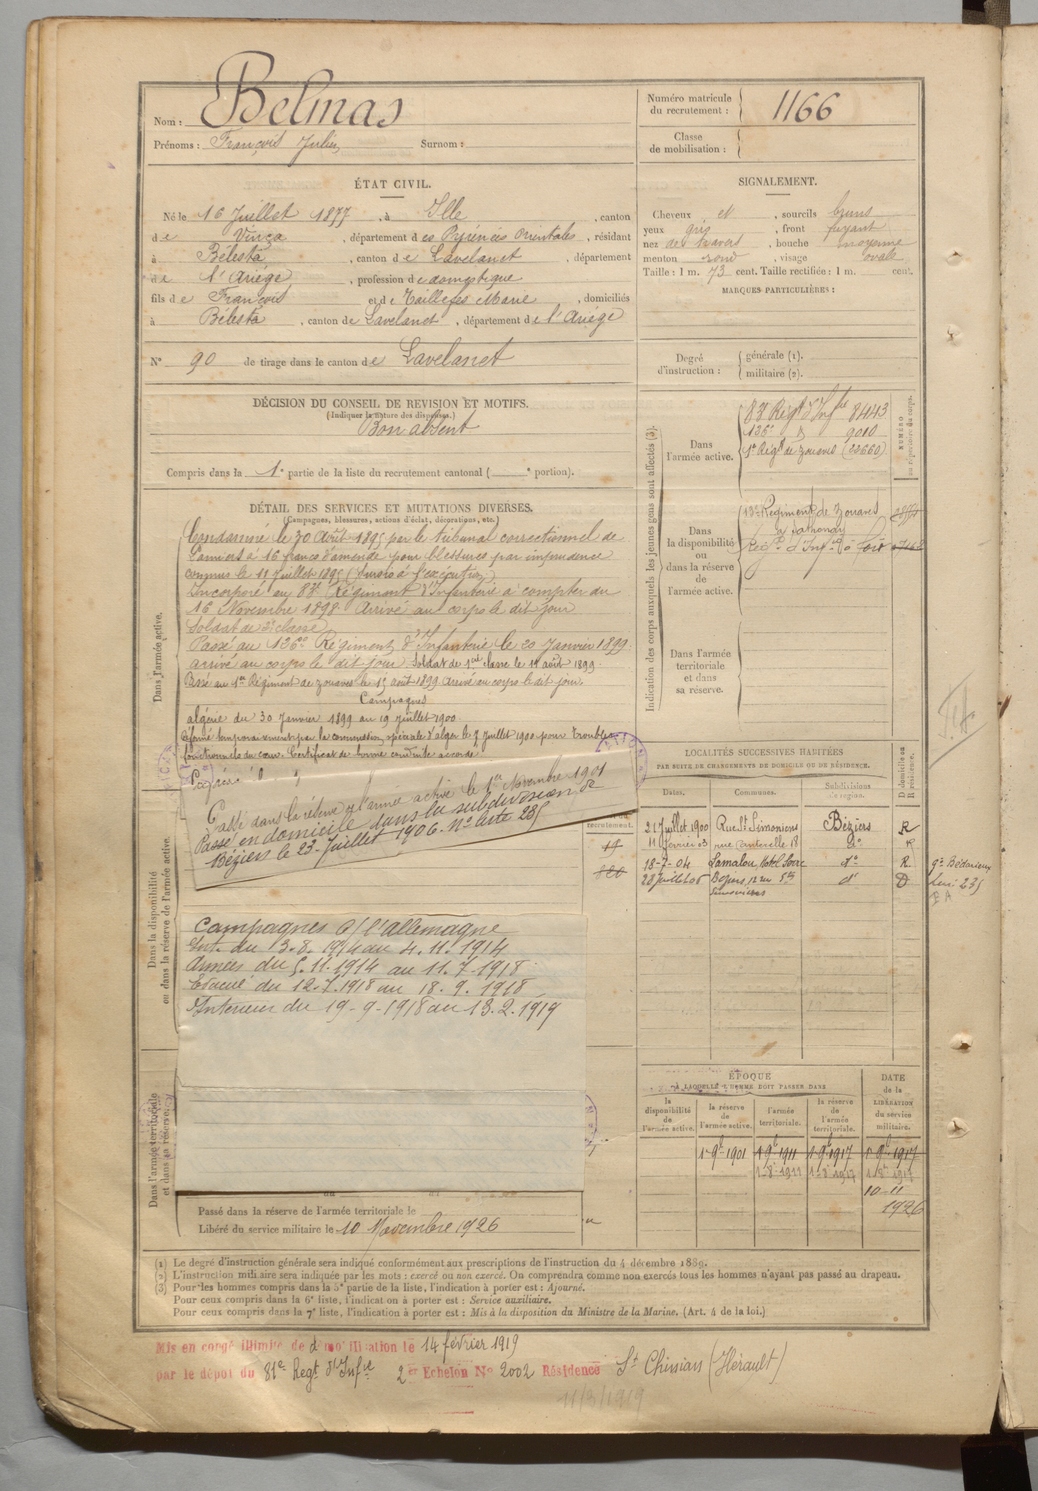 Nom : Belmas
Prénoms : François Julien Surnom :
Numéro matricule
du recrutement : 1166
Classe
de mobilisation :
ÉTAT CIVIL.
Né le 16 Juillet 1877, à Ille, canton
de Vinça, département des Pyrénées Orientales, résidant
à Bélesta, canton de Lavelanet, département
de l'Ariège, profession de domestique
fils de François et de Taillefer Marie, domiciliés
à Bélesta, canton de Lavelanet, département de l'Ariège
N° 90 de tirage dans le canton de Lavelanet
SIGNALEMENT.
Cheveux et, sourcils bruns
yeux gris, front fuyant
nez de travers, bouche moyenne
menton rond, visage ovale
Taille : 1 m. 73 cent. Taille rectifiée : 1 m. cent.
MARQUES PARTICULIÈRES :
Degré
d'instruction :
générale (1).
militaire (2).
DÉCISION DU CONSEIL DE REVISION ET MOTIFS.
(Indiquer la nature des dispenses.)
Bon absent
Compris dans la 1e partie de la liste du recrutement cantonal ( e portion).
DÉTAIL DES SERVICES ET MUTATIONS DIVERSES.
(Campagnes, blessures, actions d'éclat, décorations, etc.)
Dans l'armée active.
Condamné le 30 Août 1895 par le tribunal correctionnel de
Pamiers à 16 francs d'amende pour blessures par imprudence
commis le 11 Juillet 1895 (Sursis à l'exécution)
Incorporé au 83e Régiment d'Infanterie à compter du
16 Novembre 1898 Arrivé au corps le dit jour
Soldat de 2e classe
Passé au 136e Régiment d'Infanterie le 20 Janvier 1899
arrivé au corps le dit jour. Soldat de 1ere classe le 14 août 1899
Passé au 1er Régiment de zouaves le 15 août 1899. Arrivé au corps le dit jour.
Campagnes
algérie du 30 Janvier 1899 au 19 Juillet 1900
Réformé temporairement par la commission spéciale d'alger le 5 Juillet 1900 pour troubles
fonctionnels du cœur. Certificat de bonne conduite accordé.
Passé dans la réserve de l'armée active le 1er Novembre 1901
Passé en domicile dans la subdivision de
Béziers le 23 Juillet 1906. N° liste 235
Dans la disponibilité
ou dans la réserve de l'armée active.
Campagnes c/ l'Allemagne
Int. du 3.8.1914 au 4.11.1914
Armées du 5.11.1914 au 11.7.1918
Evacué du 12.7.1918 au 18.9.1918
Intérieur du 19-9-1918 au 13.2.1919
Dans l'armée territoriale
et dans sa réserve.
Passé dans la réserve de l'armée territoriale le
Libéré du service militaire le 10 Novembre 1926
Indication des corps auxquels les jeunes gens sont affectés (3).
NUMÉRO
au répertoire du corps.
Dans
l'armée active.
83e Régt d'Infie 8443
136e " 9010
1er Régt de zouaves (23660)
Dans
la disponibilité
ou
dans la réserve de
l'armée active.
13e Régiment de Zouaves
à Sathonay
Régt d'Infie à Foix
Dans l'armée
territoriale
et dans
sa réserve.
LOCALITÉS SUCCESSIVES HABITÉES
PAR SUITE DE CHANGEMENTS DE DOMICILE OU DE RÉSIDENCE.
Dates. Communes. Subdivisions de région. D domicile ou R résidence.
21 Juillet 1900 Rue St Simoniens Béziers R
11 février 03 rue Canterelle 18 do R
18-7-04 Lamalou Hotel do R
23 Juillet 06 Béziers, 12 rue Sts do D
Simoniens
ÉPOQUE
À LAQUELLE L'HOMME DOIT PASSER DANS
la
disponibilité
de
l'armée active.
la réserve
de
l'armée active.
l'armée
territoriale.
la réserve
de
l'armée
territoriale.
DATE
de la
LIBÉRATION
du service
militaire.
1er 9b 1901 1er 9b 1911 1er 9b 1917 1er 9b 1917
10-11
1926
(1) Le degré d'instruction générale sera indiqué conformément aux prescriptions de l'instruction du 4 décembre 1889.
(2) L'instruction militaire sera indiquée par les mots : exercé ou non exercé. On comprendra comme non exercés tous les hommes n'ayant pas passé au drapeau.
(3) Pour les hommes compris dans la 5e partie de la liste, l'indication à porter est : Ajourné.
Pour ceux compris dans la 6e liste, l'indication à porter est : Service auxiliaire.
Pour ceux compris dans la 7e liste, l'indication à porter est : Mis à la disposition du Ministre de la Marine. (Art. 4 de la loi.)
Mis en congé illimité de démobilisation le 14 février 1919
par le dépôt du 81e Régt d'Infie 2er Echelon N° 2002 Résidence St Chinian (Hérault)
11/3/1919